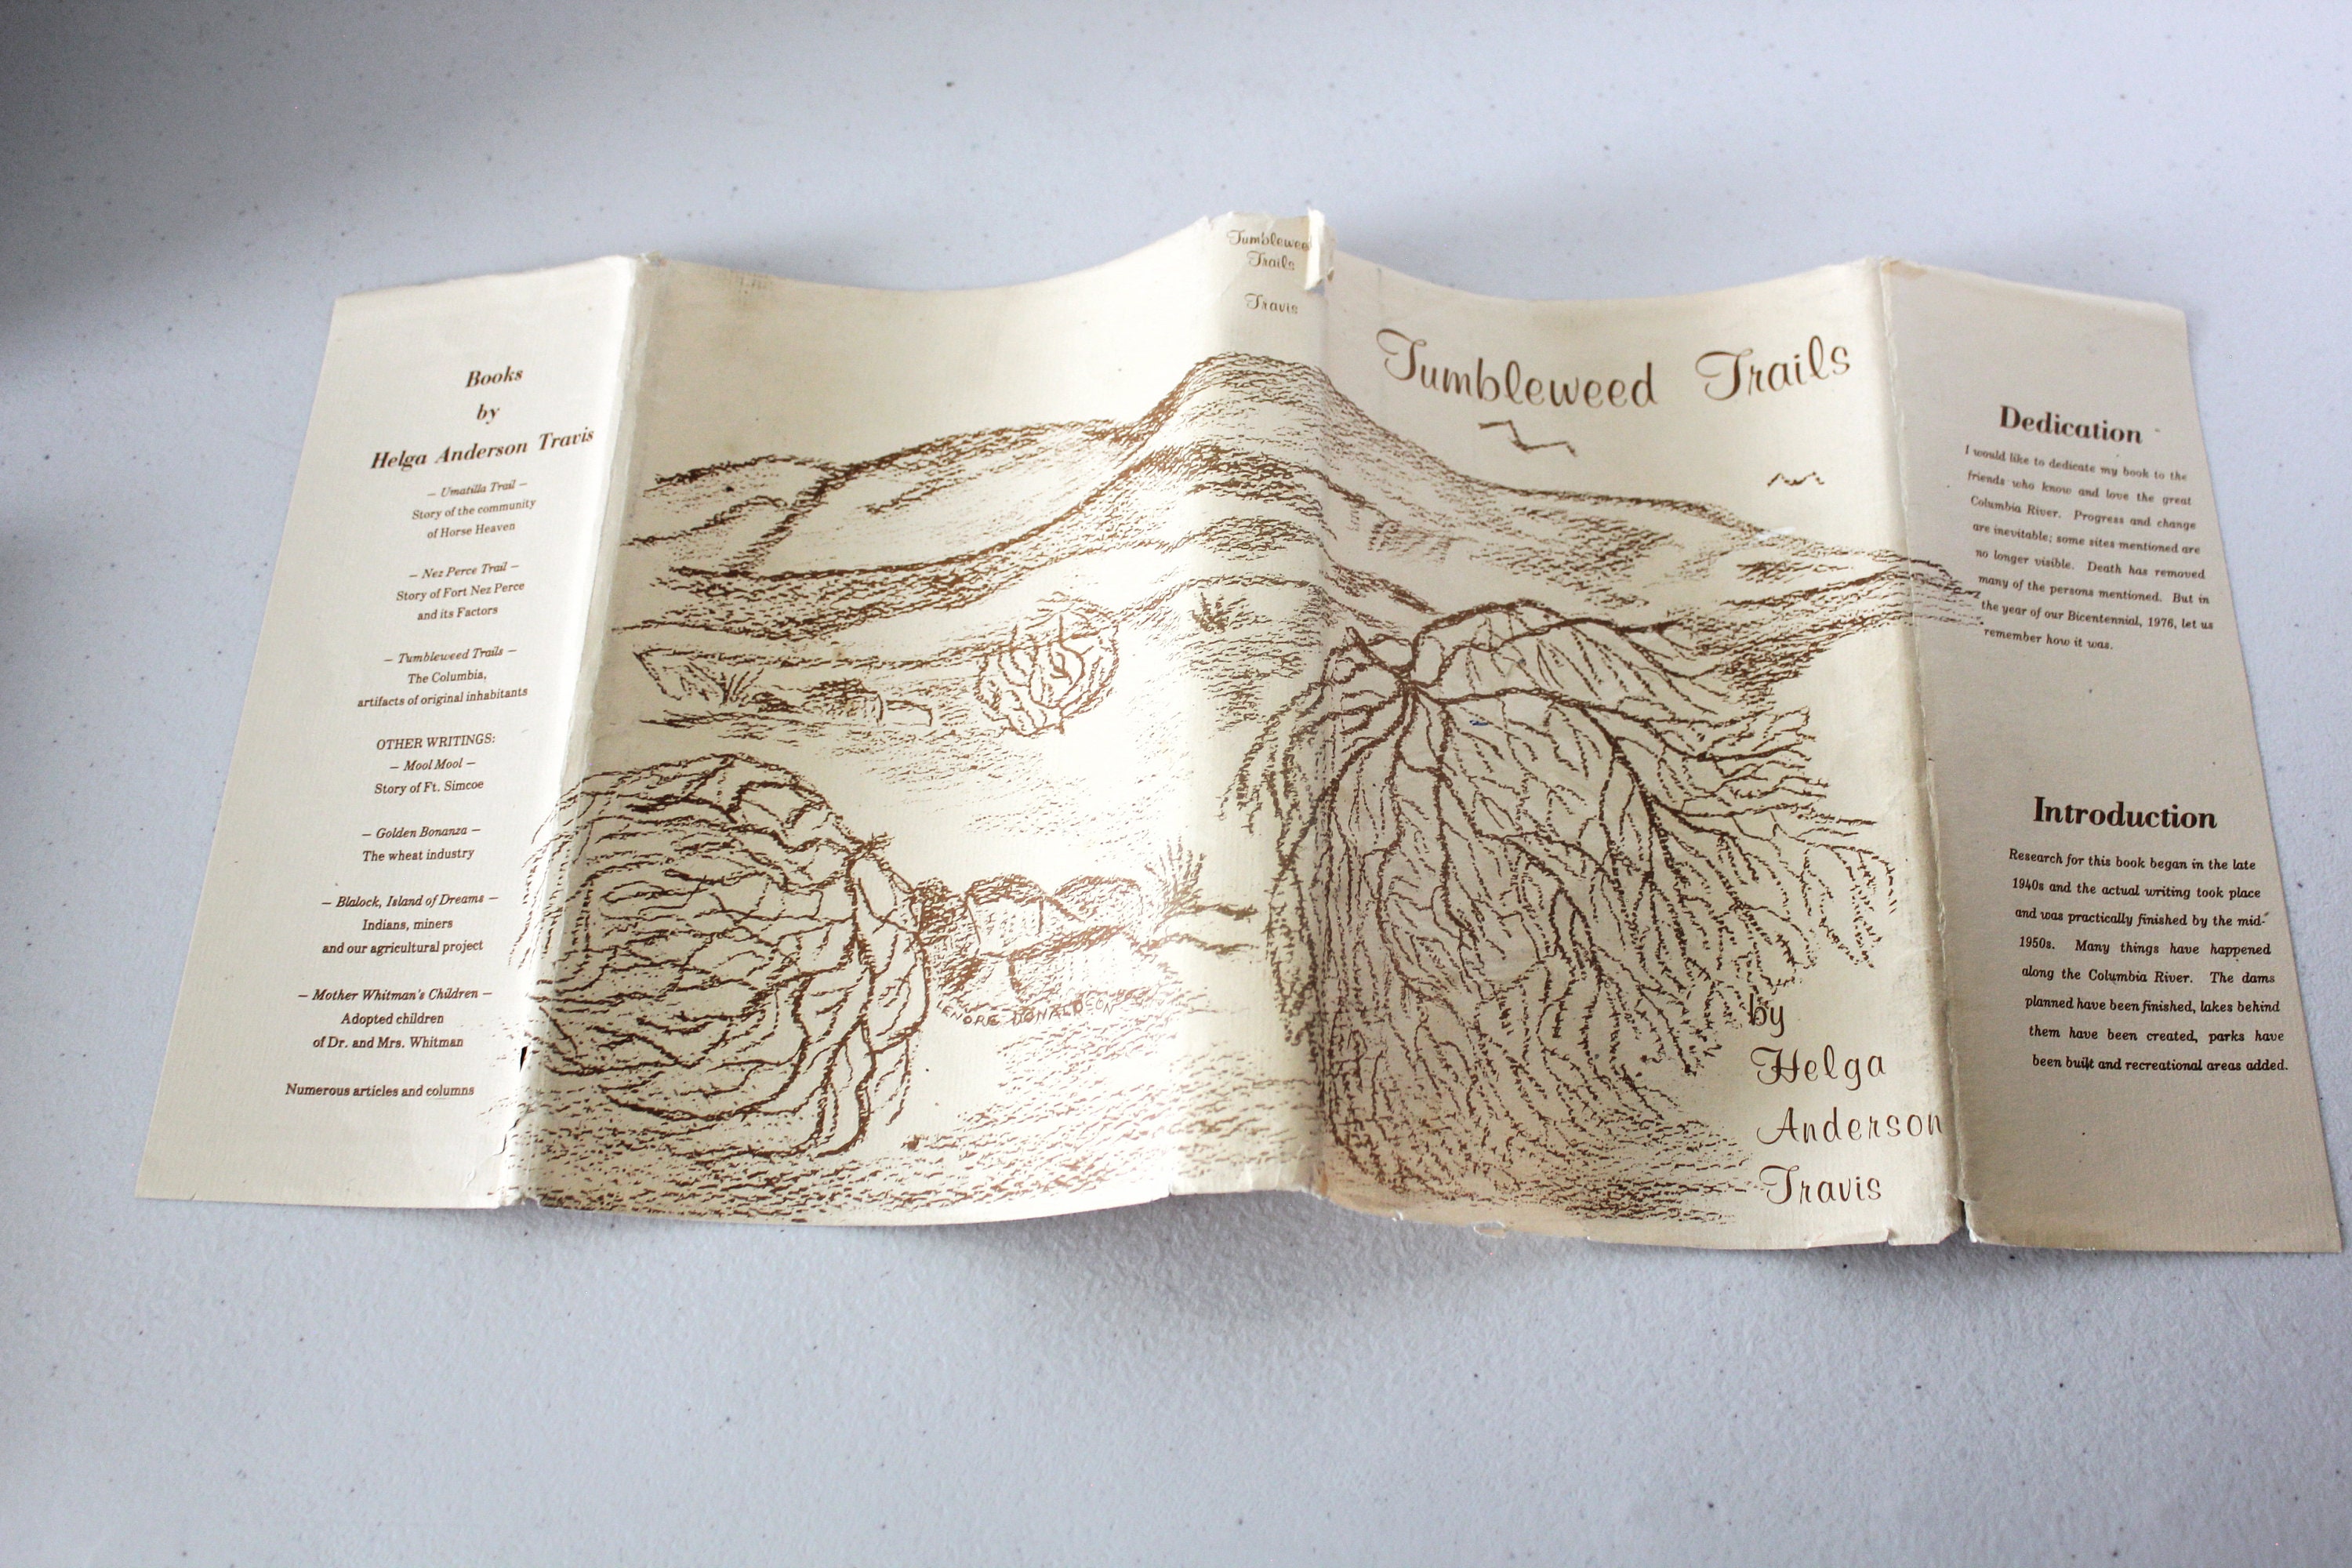 Books
by
Helga Anderson Travis
— Umatilla Trail —
Story of the community
of Horse Heaven
— Nez Perce Trail —
Story of Fort Nez Perce
and its Factors
— Tumbleweed Trails —
The Columbia,
artifacts of original inhabitants
OTHER WRITINGS:
— Mool Mool —
Story of Ft. Simcoe
— Golden Bonanza —
The wheat industry
— Blalock, Island of Dreams —
Indians, miners
and our agricultural project
— Mother Whitman's Children —
Adopted children
of Dr. and Mrs. Whitman
Numerous articles and columns
LENORE DONALDSON
Tumblewee
Trails
Travis
Tumbleweed Trails
by
Helga
Anderson
Travis
Dedication
I would like to dedicate my book to the
friends who know and love the great
Columbia River. Progress and change
are inevitable; some sites mentioned are
no longer visible. Death has removed
many of the persons mentioned. But in
the year of our Bicentennial, 1976, let us
remember how it was.
Introduction
Research for this book began in the late
1940s and the actual writing took place
and was practically finished by the mid-
1950s. Many things have happened
along the Columbia River. The dams
planned have been finished, lakes behind
them have been created, parks have
been built and recreational areas added.